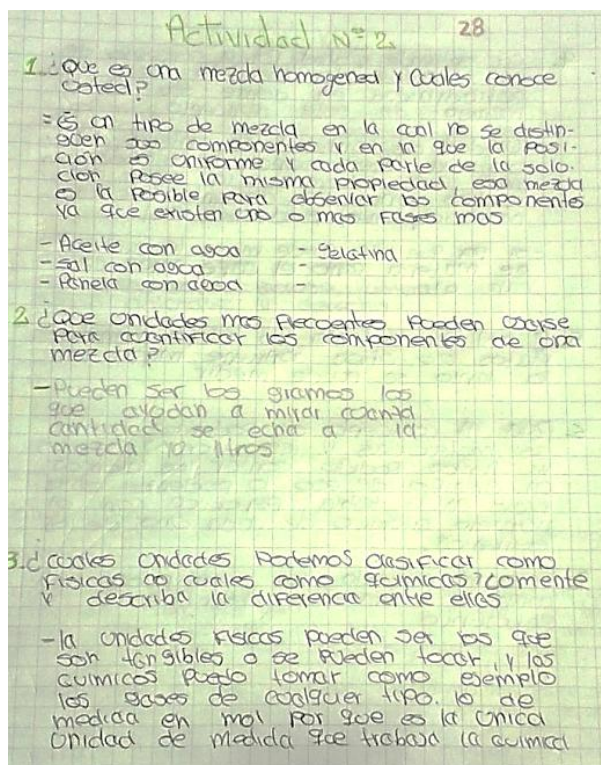 Actividad Nº 2.
28
1. ¿Que es una mezcla homogenea y Cuales conoce
usted?
= Es un tipo de mezcla en la cual no se distin-
guen sus componentes y en la que la Posi-
ción es uniforme y cada parte de la solo.
cion Posee la misma propiedad, esa mezcla
es la Posible Para observar los componentes
ya que existen uno o mas Fases mas
- Aceite con agua - gelatina
- sal con agua -
- Panela con agua -
2 ¿Que unidades mas Frecuentes Pueden usarse
Para cuantificar los componentes de una
mezcla?
- Pueden ser los gramos los
que ayudan a mirar cuanta
cantidad se echa a la
mezcla litros
3. ¿cuales unidades Podemos clasificar como
Fisicas cuales como quimicas? comente
y describa la diferencia entre ellas
- la unidades Fisicas pueden ser los que
son tangibles o se Pueden tocar, y los
cuimicos puedo tomar como ejemplo
los gases de cualquier tipo. lo de
medida en mol Por que es la unica
unidad de medida que trabaja la cuimica